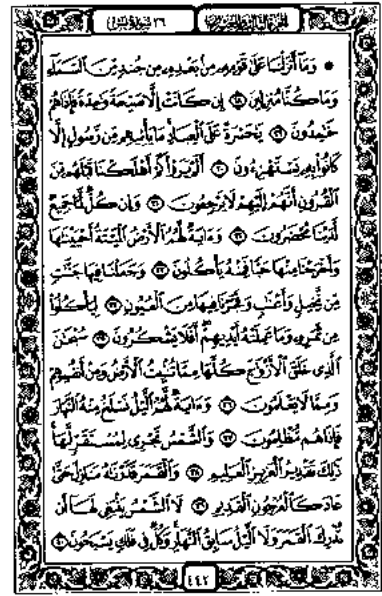 الجزء الثالث والعشرون ٣٦ سورة يس
۞ وَمَا أَنزَلْنَا عَلَىٰ قَوْمِهِ مِن بَعْدِهِ مِن جُندٍ مِّنَ السَّمَاءِ
وَمَا كُنَّا مُنزِلِينَ ٢٨ إِن كَانَتْ إِلَّا صَيْحَةً وَاحِدَةً فَإِذَا هُمْ
خَامِدُونَ ٢٩ يَا حَسْرَةً عَلَى الْعِبَادِ مَا يَأْتِيهِم مِّن رَّسُولٍ إِلَّا
كَانُوا بِهِ يَسْتَهْزِءُونَ ٣٠ أَلَمْ يَرَوْا كَمْ أَهْلَكْنَا قَبْلَهُم مِّنَ
الْقُرُونِ أَنَّهُمْ إِلَيْهِمْ لَا يَرْجِعُونَ ٣١ وَإِن كُلٌّ لَّمَّا جَمِيعٌ
لَّدَيْنَا مُحْضَرُونَ ٣٢ وَآيَةٌ لَّهُمُ الْأَرْضُ الْمَيْتَةُ أَحْيَيْنَاهَا
وَأَخْرَجْنَا مِنْهَا حَبًّا فَمِنْهُ يَأْكُلُونَ ٣٣ وَجَعَلْنَا فِيهَا جَنَّاتٍ
مِّن نَّخِيلٍ وَأَعْنَابٍ وَفَجَّرْنَا فِيهَا مِنَ الْعُيُونِ ٣٤ لِيَأْكُلُوا
مِن ثَمَرِهِ وَمَا عَمِلَتْهُ أَيْدِيهِمْ أَفَلَا يَشْكُرُونَ ٣٥ سُبْحَانَ
الَّذِي خَلَقَ الْأَزْوَاجَ كُلَّهَا مِمَّا تُنبِتُ الْأَرْضُ وَمِنْ أَنفُسِهِمْ
وَمِمَّا لَا يَعْلَمُونَ ٣٦ وَآيَةٌ لَّهُمُ اللَّيْلُ نَسْلَخُ مِنْهُ النَّهَارَ
فَإِذَا هُم مُّظْلِمُونَ ٣٧ وَالشَّمْسُ تَجْرِي لِمُسْتَقَرٍّ لَّهَا
ذَٰلِكَ تَقْدِيرُ الْعَزِيزِ الْعَلِيمِ ٣٨ وَالْقَمَرَ قَدَّرْنَاهُ مَنَازِلَ حَتَّىٰ
عَادَ كَالْعُرْجُونِ الْقَدِيمِ ٣٩ لَا الشَّمْسُ يَنبَغِي لَهَا أَن
تُدْرِكَ الْقَمَرَ وَلَا اللَّيْلُ سَابِقُ النَّهَارِ وَكُلٌّ فِي فَلَكٍ يَسْبَحُونَ ٤٠
٤٤٢